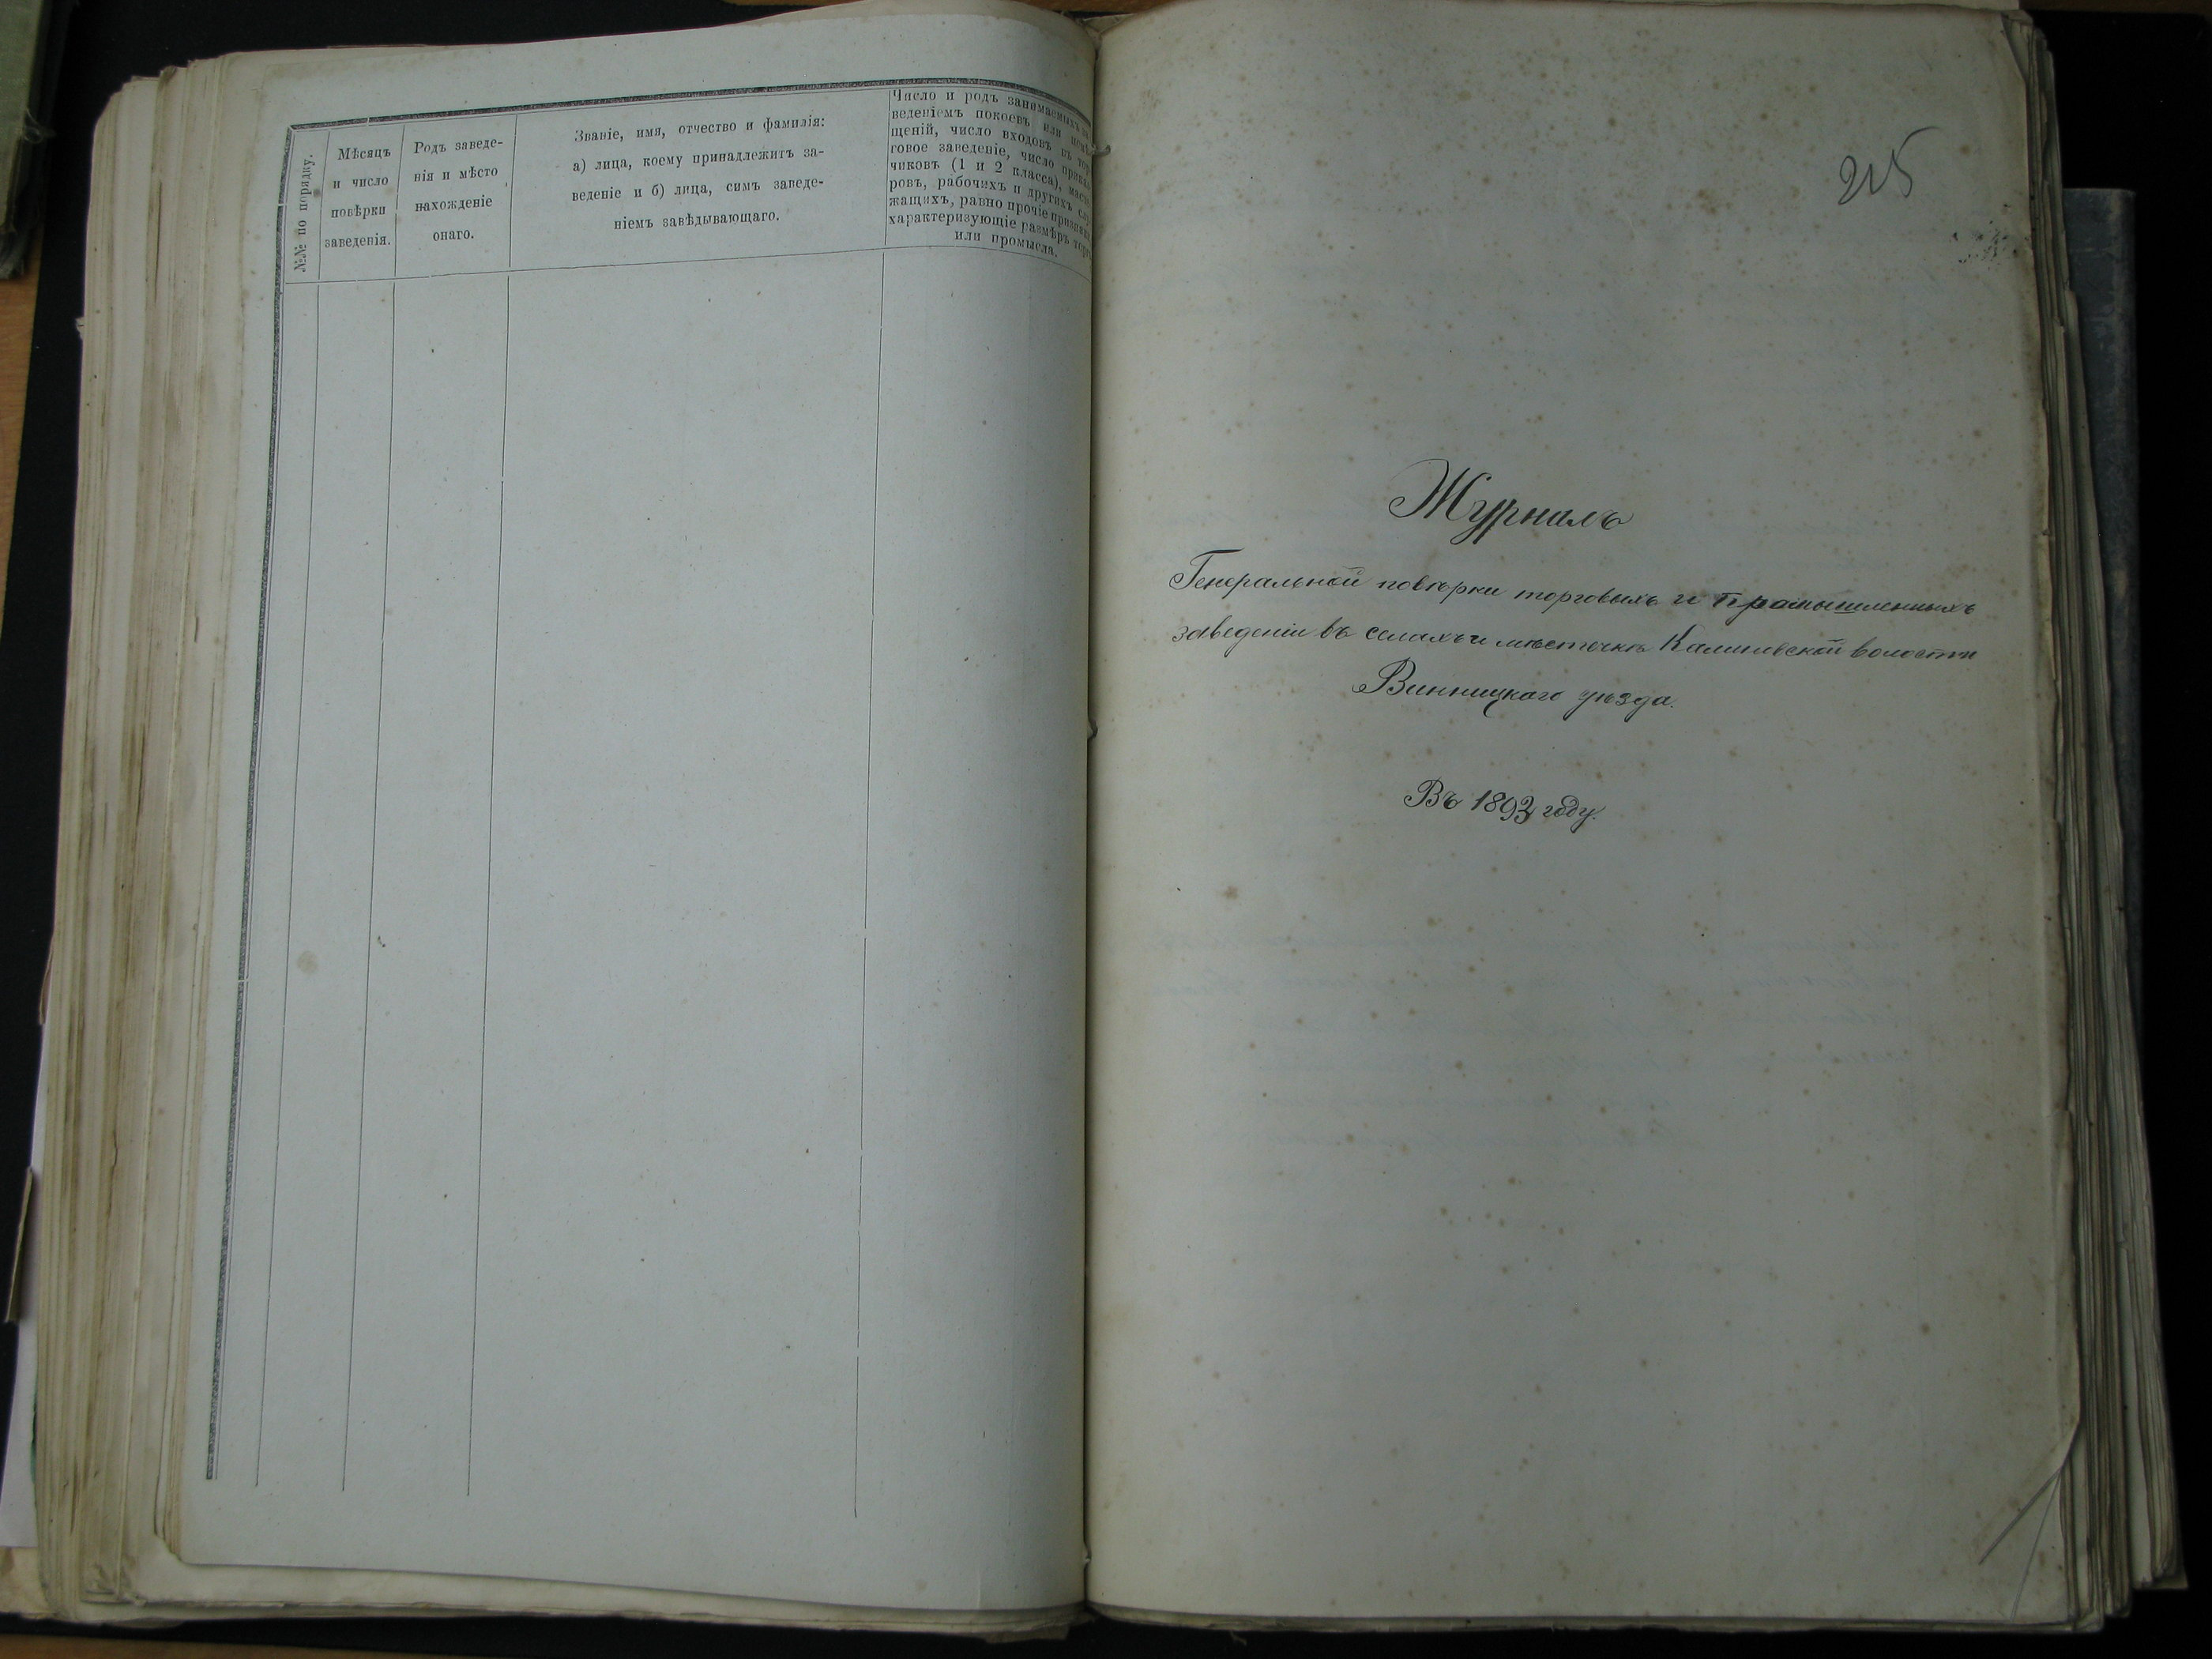 №№ по порядку.
Мѣсяцъ
и число
повѣрки
заведенія.
Родъ заведе-
нія и мѣсто
нахожденіе
онаго.
Званіе, имя, отчество и фамилія:
а) лица, коему принадлежитъ за-
веденіе и б) лица, симъ заведе-
ніемъ завѣдывающаго.
Число и родъ занимаемыхъ за
веденіемъ покоевъ или помѣ
щеній, число входовъ въ тор
говое заведеніе, число прика
чиковъ (1 и 2 класса), масте
ровъ, рабочихъ и другихъ слу
жащихъ, равно прочіе признаки
характеризующіе размѣръ торго
или промысла.
215
Журналъ
Генеральной повѣрки торговыхъ и промышленныхъ
заведеніи въ селахъ и мѣстечкѣ Калиновской волости
Винницкаго уѣзда.
Въ 1893 году.